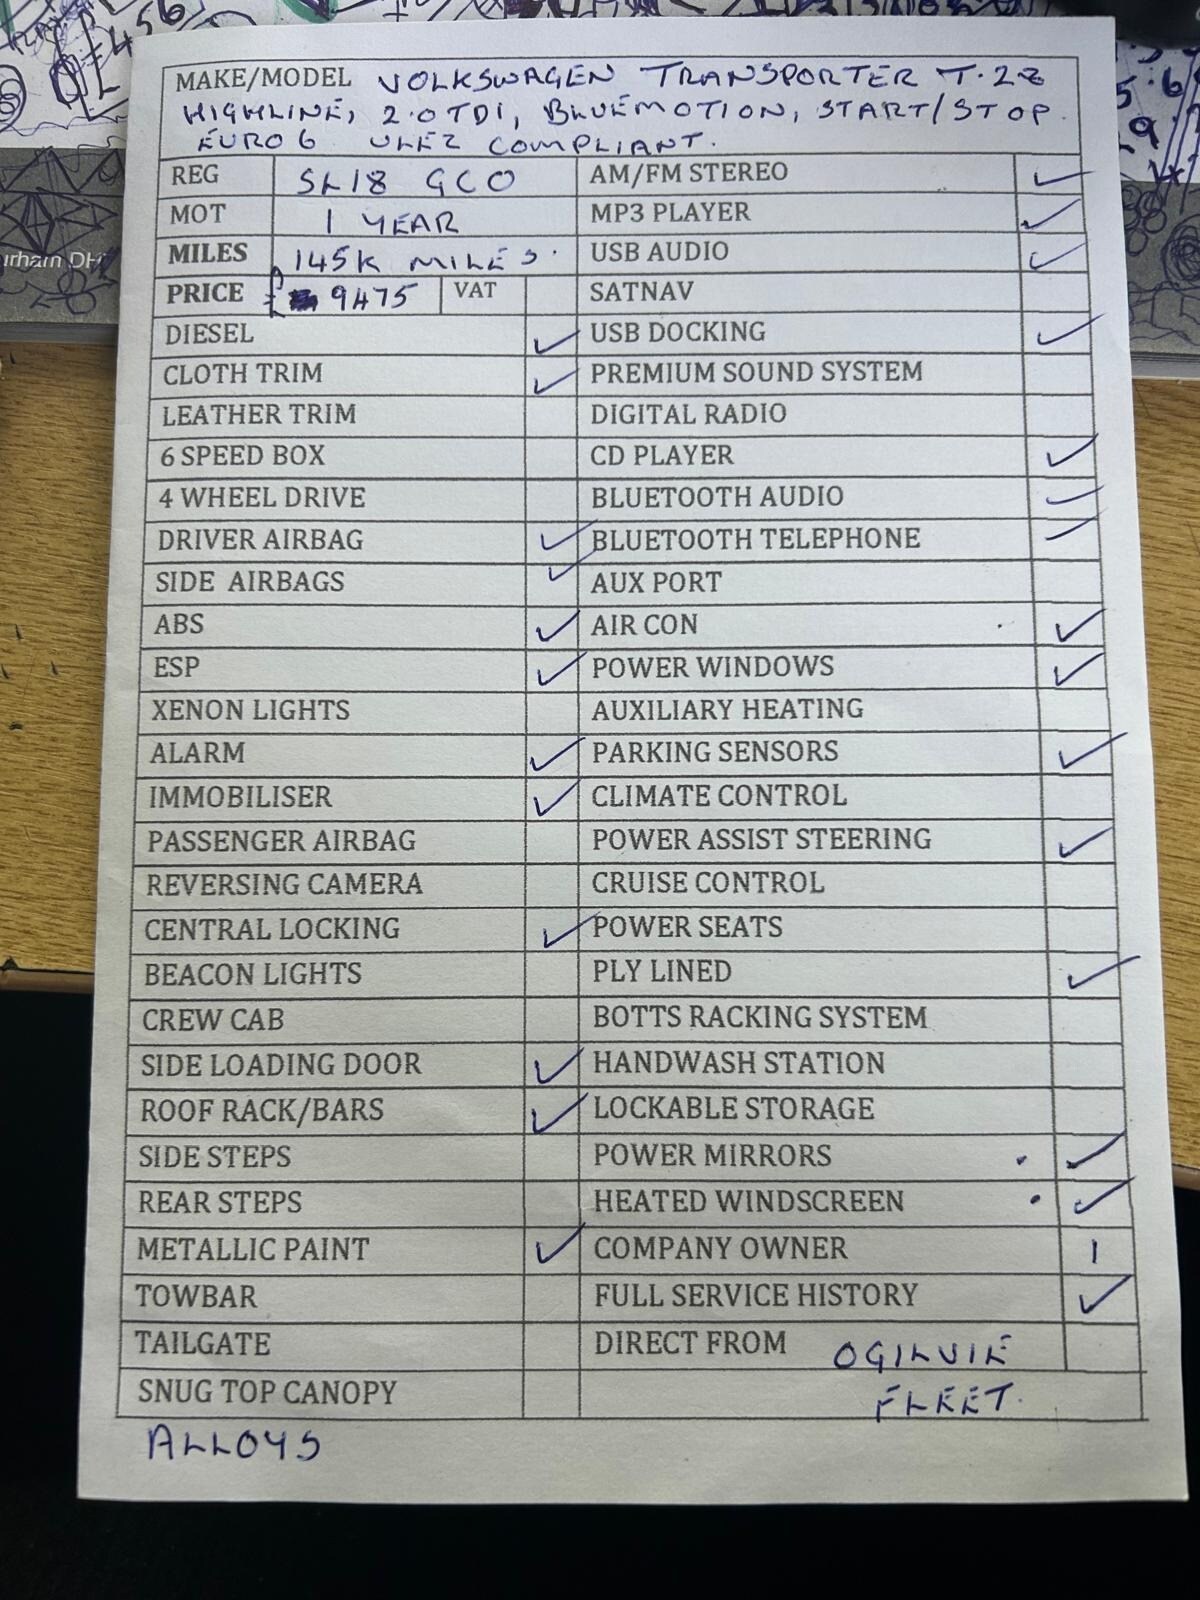 MAKE/MODEL VOLKSWAGEN TRANSPORTER T.28
HIGHLINE, 2.0 TDI, BLUEMOTION, START/STOP.
EURO 6 ULEZ COMPLIANT.
REG SL18 GCO AM/FM STEREO ✓
MOT 1 YEAR MP3 PLAYER ✓
MILES 145K MILES. USB AUDIO ✓
PRICE £ 9475 VAT SATNAV
DIESEL ✓ USB DOCKING ✓
CLOTH TRIM ✓ PREMIUM SOUND SYSTEM
LEATHER TRIM DIGITAL RADIO
6 SPEED BOX CD PLAYER ✓
4 WHEEL DRIVE BLUETOOTH AUDIO ✓
DRIVER AIRBAG ✓ BLUETOOTH TELEPHONE ✓
SIDE AIRBAGS ✓ AUX PORT
ABS ✓ AIR CON ✓
ESP ✓ POWER WINDOWS ✓
XENON LIGHTS AUXILIARY HEATING
ALARM ✓ PARKING SENSORS ✓
IMMOBILISER ✓ CLIMATE CONTROL
PASSENGER AIRBAG POWER ASSIST STEERING ✓
REVERSING CAMERA CRUISE CONTROL
CENTRAL LOCKING ✓ POWER SEATS
BEACON LIGHTS PLY LINED ✓
CREW CAB BOTTS RACKING SYSTEM
SIDE LOADING DOOR ✓ HANDWASH STATION
ROOF RACK/BARS ✓ LOCKABLE STORAGE
SIDE STEPS POWER MIRRORS ✓
REAR STEPS HEATED WINDSCREEN ✓
METALLIC PAINT ✓ COMPANY OWNER 1
TOWBAR FULL SERVICE HISTORY ✓
TAILGATE DIRECT FROM OGILVIE
SNUG TOP CANOPY FLEET.
ALLOYS